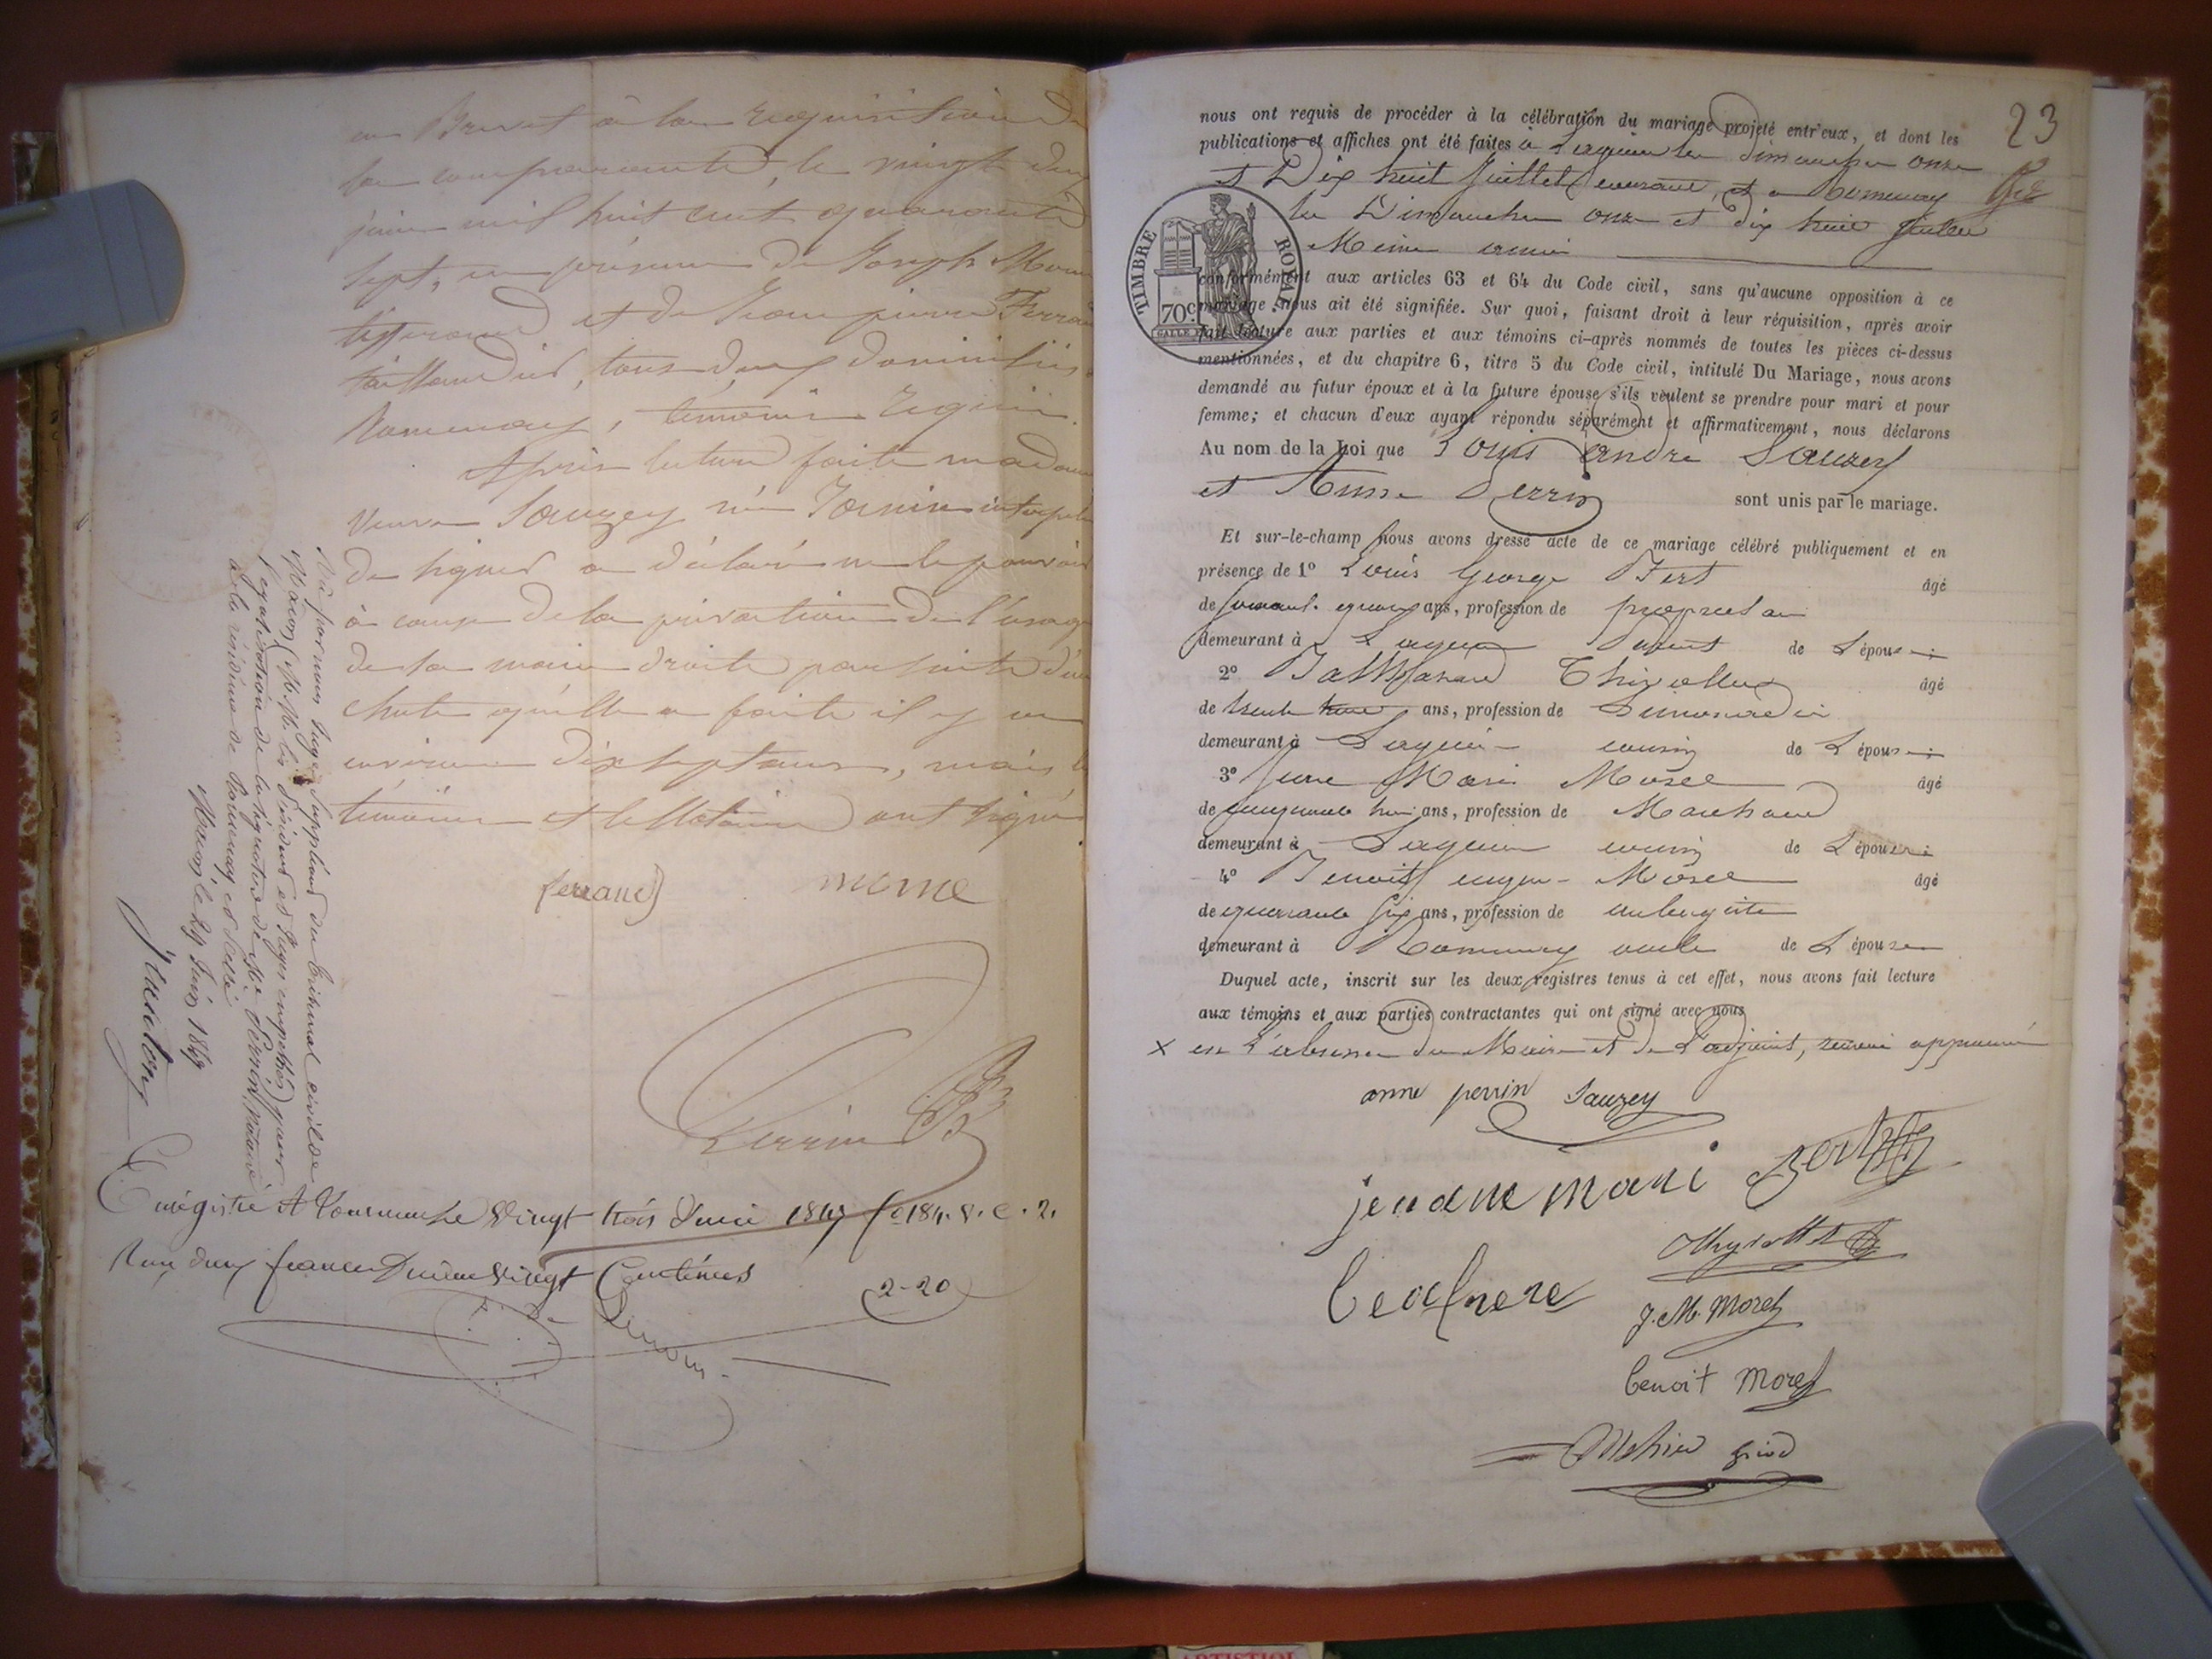 en Brevet à la requisition de
la comparante, le vingt deux
juin mil huit cent quarante
sept, en présence de Joseph Morne
tisserand et de Jean pierre Ferrand
taillandier, tous deux domiciliés à
Romenay, témoins requis.
Après lecture faite madame
Veuve Sauzey née interpellée
de signer a déclaré ne le pouvoir
à cause de la privation de l'usage
de la main droite par suite d'une
chute qu'elle a faite il y a
environ dix sept ans, mais les
témoins et le Notaire ont signé.
ferrand morne
Perrin
Vu par nous Juge Suppléant du tribunal civil de
Macon (M.M. les Président et Juges empêchés) pour
légalisation de la signature de Me Perrin, notaire
à la résidence de Romenay
Macon le 29 Juin 1847
Enrégistré A Tournus le vingt trois Juin 1847 fo 184. v. c. 2.
Reçu deux francs Decime vingt Centimes
2-20
23
nous ont requis de procéder à la célébration du mariage projeté entr'eux, et dont les
publications et affiches ont été faites à les Dimanches onze
et Dix huit Juillet courant, et a Romenay
les Dimanches onze et dix huit Juillet
Même année
TIMBRE ROYAL
70c
conformément aux articles 63 et 64 du Code civil, sans qu'aucune opposition à ce
mariage nous ait été signifiée. Sur quoi, faisant droit à leur réquisition, après avoir
fait lecture aux parties et aux témoins ci-après nommés de toutes les pièces ci-dessus
mentionnées, et du chapitre 6, titre 5 du Code civil, intitulé Du Mariage, nous avons
demandé au futur époux et à la future épouse s'ils veulent se prendre pour mari et pour
femme; et chacun d'eux ayant répondu séparément et affirmativement, nous déclarons
Au nom de la Loi que Louis andré Sauzey
et Anne Perrin sont unis par le mariage.
Et sur-le-champ nous avons dressé acte de ce mariage célébré publiquement et en
présence de 1º Louis George Bert âgé
de ans, profession de propriétaire
demeurant à de L'épouse
2º Balthazard Thivollet âgé
de trente ans, profession de Limonadier
demeurant à cousin de L'épouse
3º Jean Marie Morel âgé
de cinquante ans, profession de Marchand
demeurant à cousin de L'épouse
4º Benoit Morel âgé
de quarante six ans, profession de aubergiste
demeurant à Romenay oncle de L'épouse
Duquel acte, inscrit sur les deux registres tenus à cet effet, nous avons fait lecture
aux témoins et aux parties contractantes qui ont signé avec nous
x en L'absence du Maire et de L'adjoint, renvoi approuvé
anne perrin Sauzey
Bert
J. M. Morel
benoit Morel